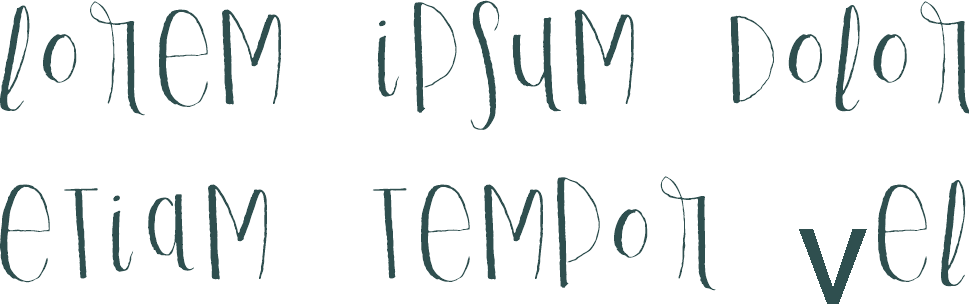 lorem ipsum dolor
etiam tempor vel